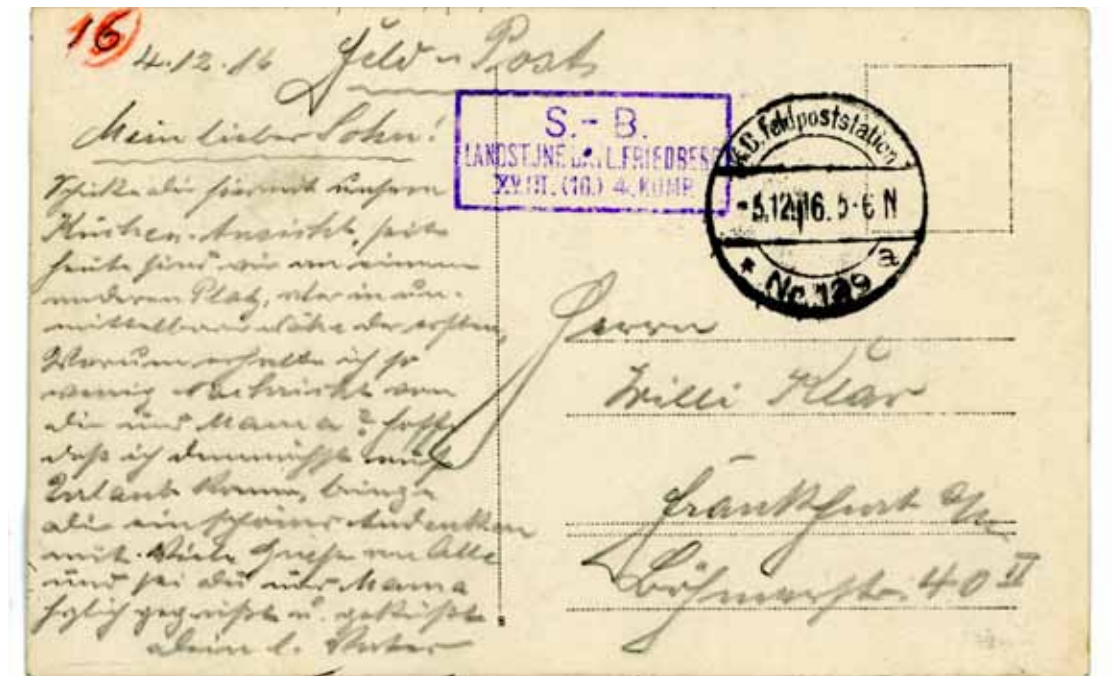 16
4.12.16 Feld-Post
Mein lieber Sohn!
Schicke dir hiermit unsere
Küchen-Ansicht, seit
heute sind wir an einem
anderen Platz, aber in un-
mittelbarer Nähe der ersten,
Warum erhalte ich so
wenig Nachricht von
dir und Mama? hoffe
daß ich demnächst auf
Urlaub komme, bringe
dir ein schönes Andenken
mit. Viele Grüße an Alle
und sei du und Mama
hzlich gegrüßt u. geküßt
dein l. Vater
S.- B.
LANDST.INF. FRIEDBERG
XVIII. (16.) 4. KOMP.
K.D. Feldpoststation
-5.12.16. 5-6 N
* Nr. 129 a
Herrn
Willi Klar
Frankfurt a/M
Böhmerstr. 40 II